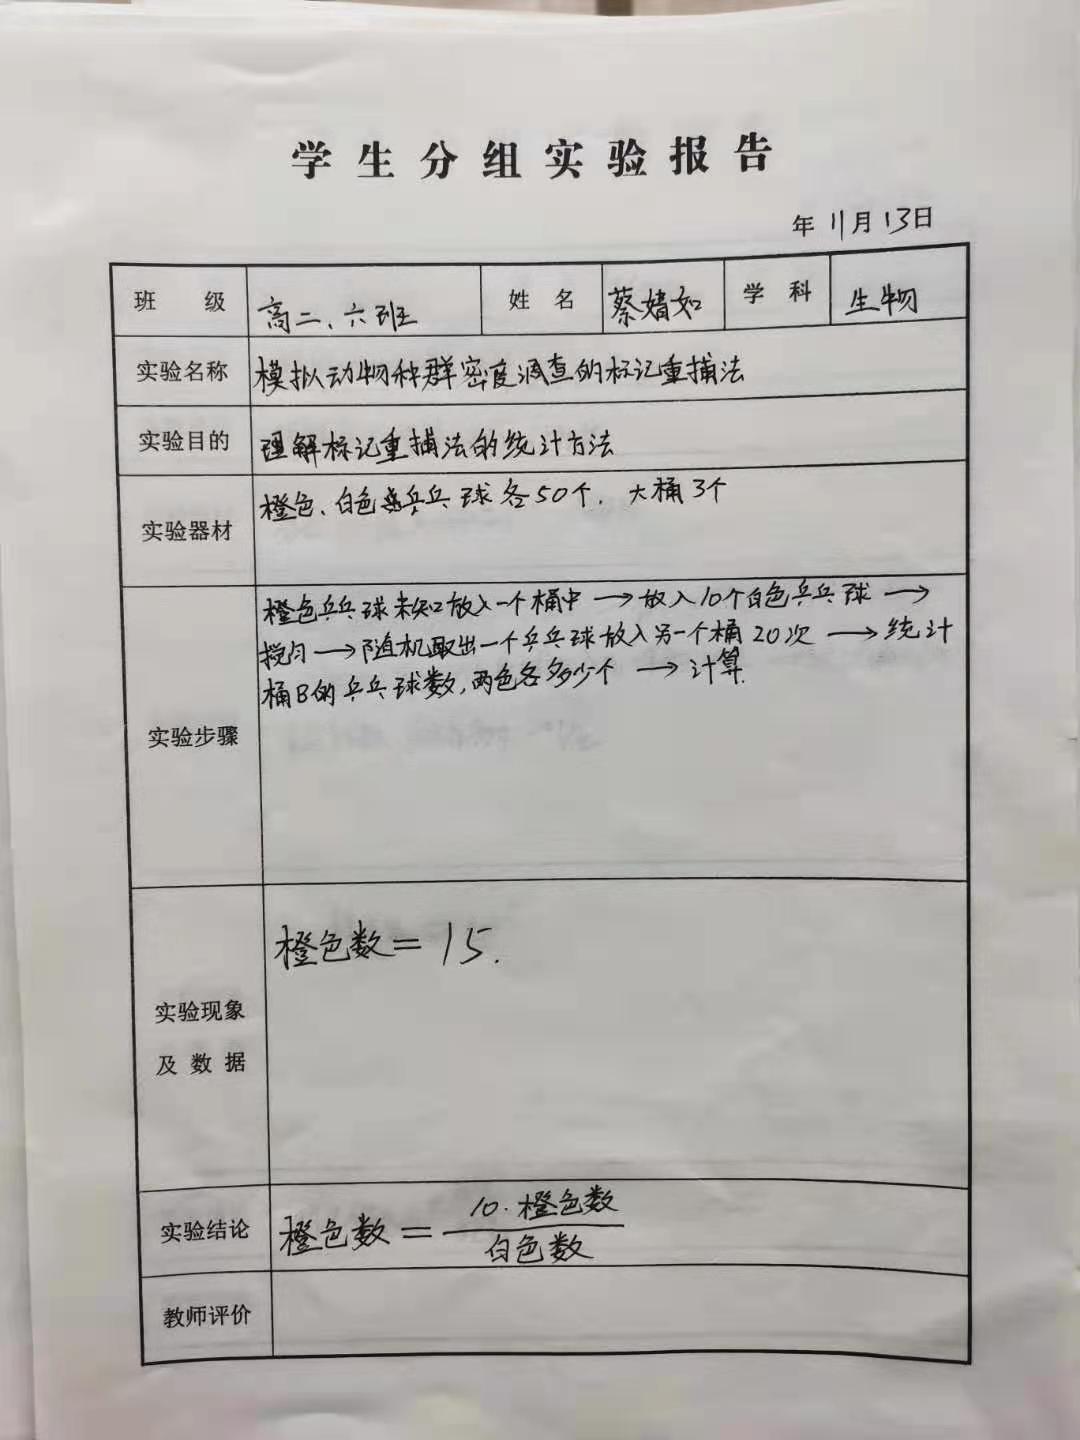 学生分组实验报告
年 11月 13日
班 级 高二、六班 姓 名 蔡婧如 学 科 生物
实验名称 模拟动物种群密度调查的标记重捕法
实验目的 理解标记重捕法的统计方法
实验器材 橙色、白色乒乓球各50个. 大桶3个
橙色乒乓球未知放入一个桶中→放入10个白色乒乓球→
搅匀→随机取出一个乒乓球放入另一个桶20次→统计
桶B的乒乓球数,两色各多少个→计算.
实验步骤
橙色数=15.
实验现象
及 数 据
实验结论 橙色数=10·橙色数/白色数
教师评价